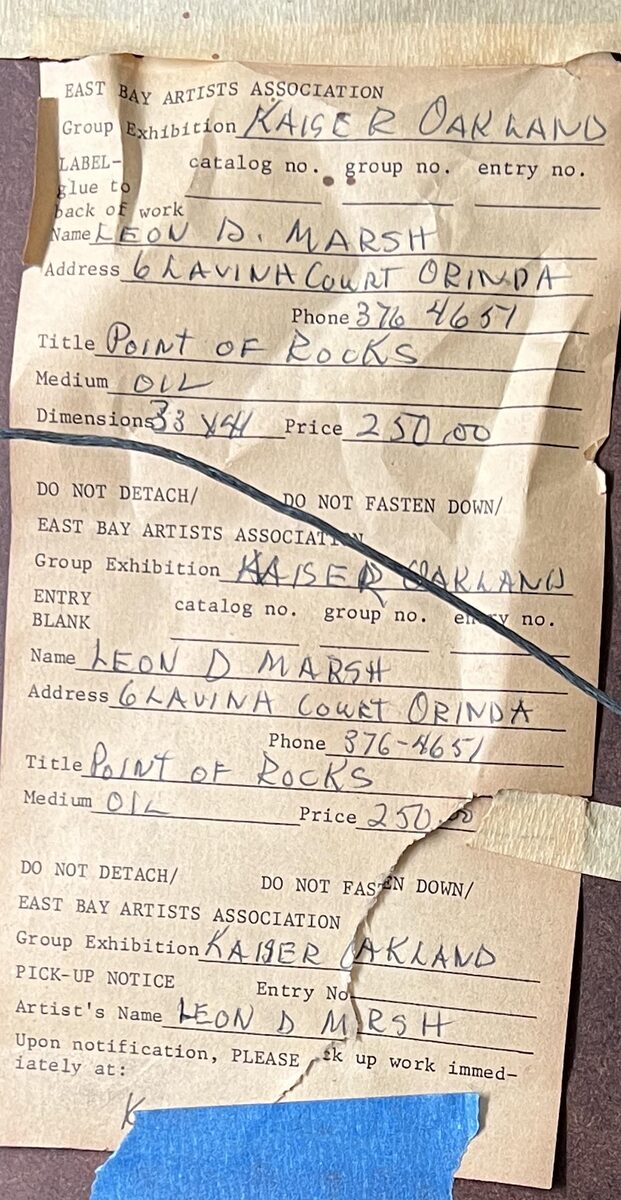 EAST BAY ARTISTS ASSOCIATION
Group Exhibition KAISER OAKLAND
LABEL- catalog no. group no. entry no.
glue to
back of work
Name LEON D. MARSH
Address 6 LAVINA COURT ORINDA
Phone 376 4651
Title POINT OF ROCKS
Medium OIL
Dimensions 33 X 41 Price 250.00
DO NOT DETACH/ DO NOT FASTEN DOWN/
EAST BAY ARTISTS ASSOCIATION
Group Exhibition KAISER OAKLAND
ENTRY catalog no. group no. entry no.
BLANK
Name LEON D MARSH
Address 6 LAVINA COURT ORINDA
Phone 376-4651
Title POINT OF ROCKS
Medium OIL Price 250.00
DO NOT DETACH/ DO NOT FASTEN DOWN/
EAST BAY ARTISTS ASSOCIATION
Group Exhibition KAISER OAKLAND
PICK-UP NOTICE Entry No
Artist's Name LEON D MARSH
Upon notification, PLEASE ck up work immed-
iately at:
K